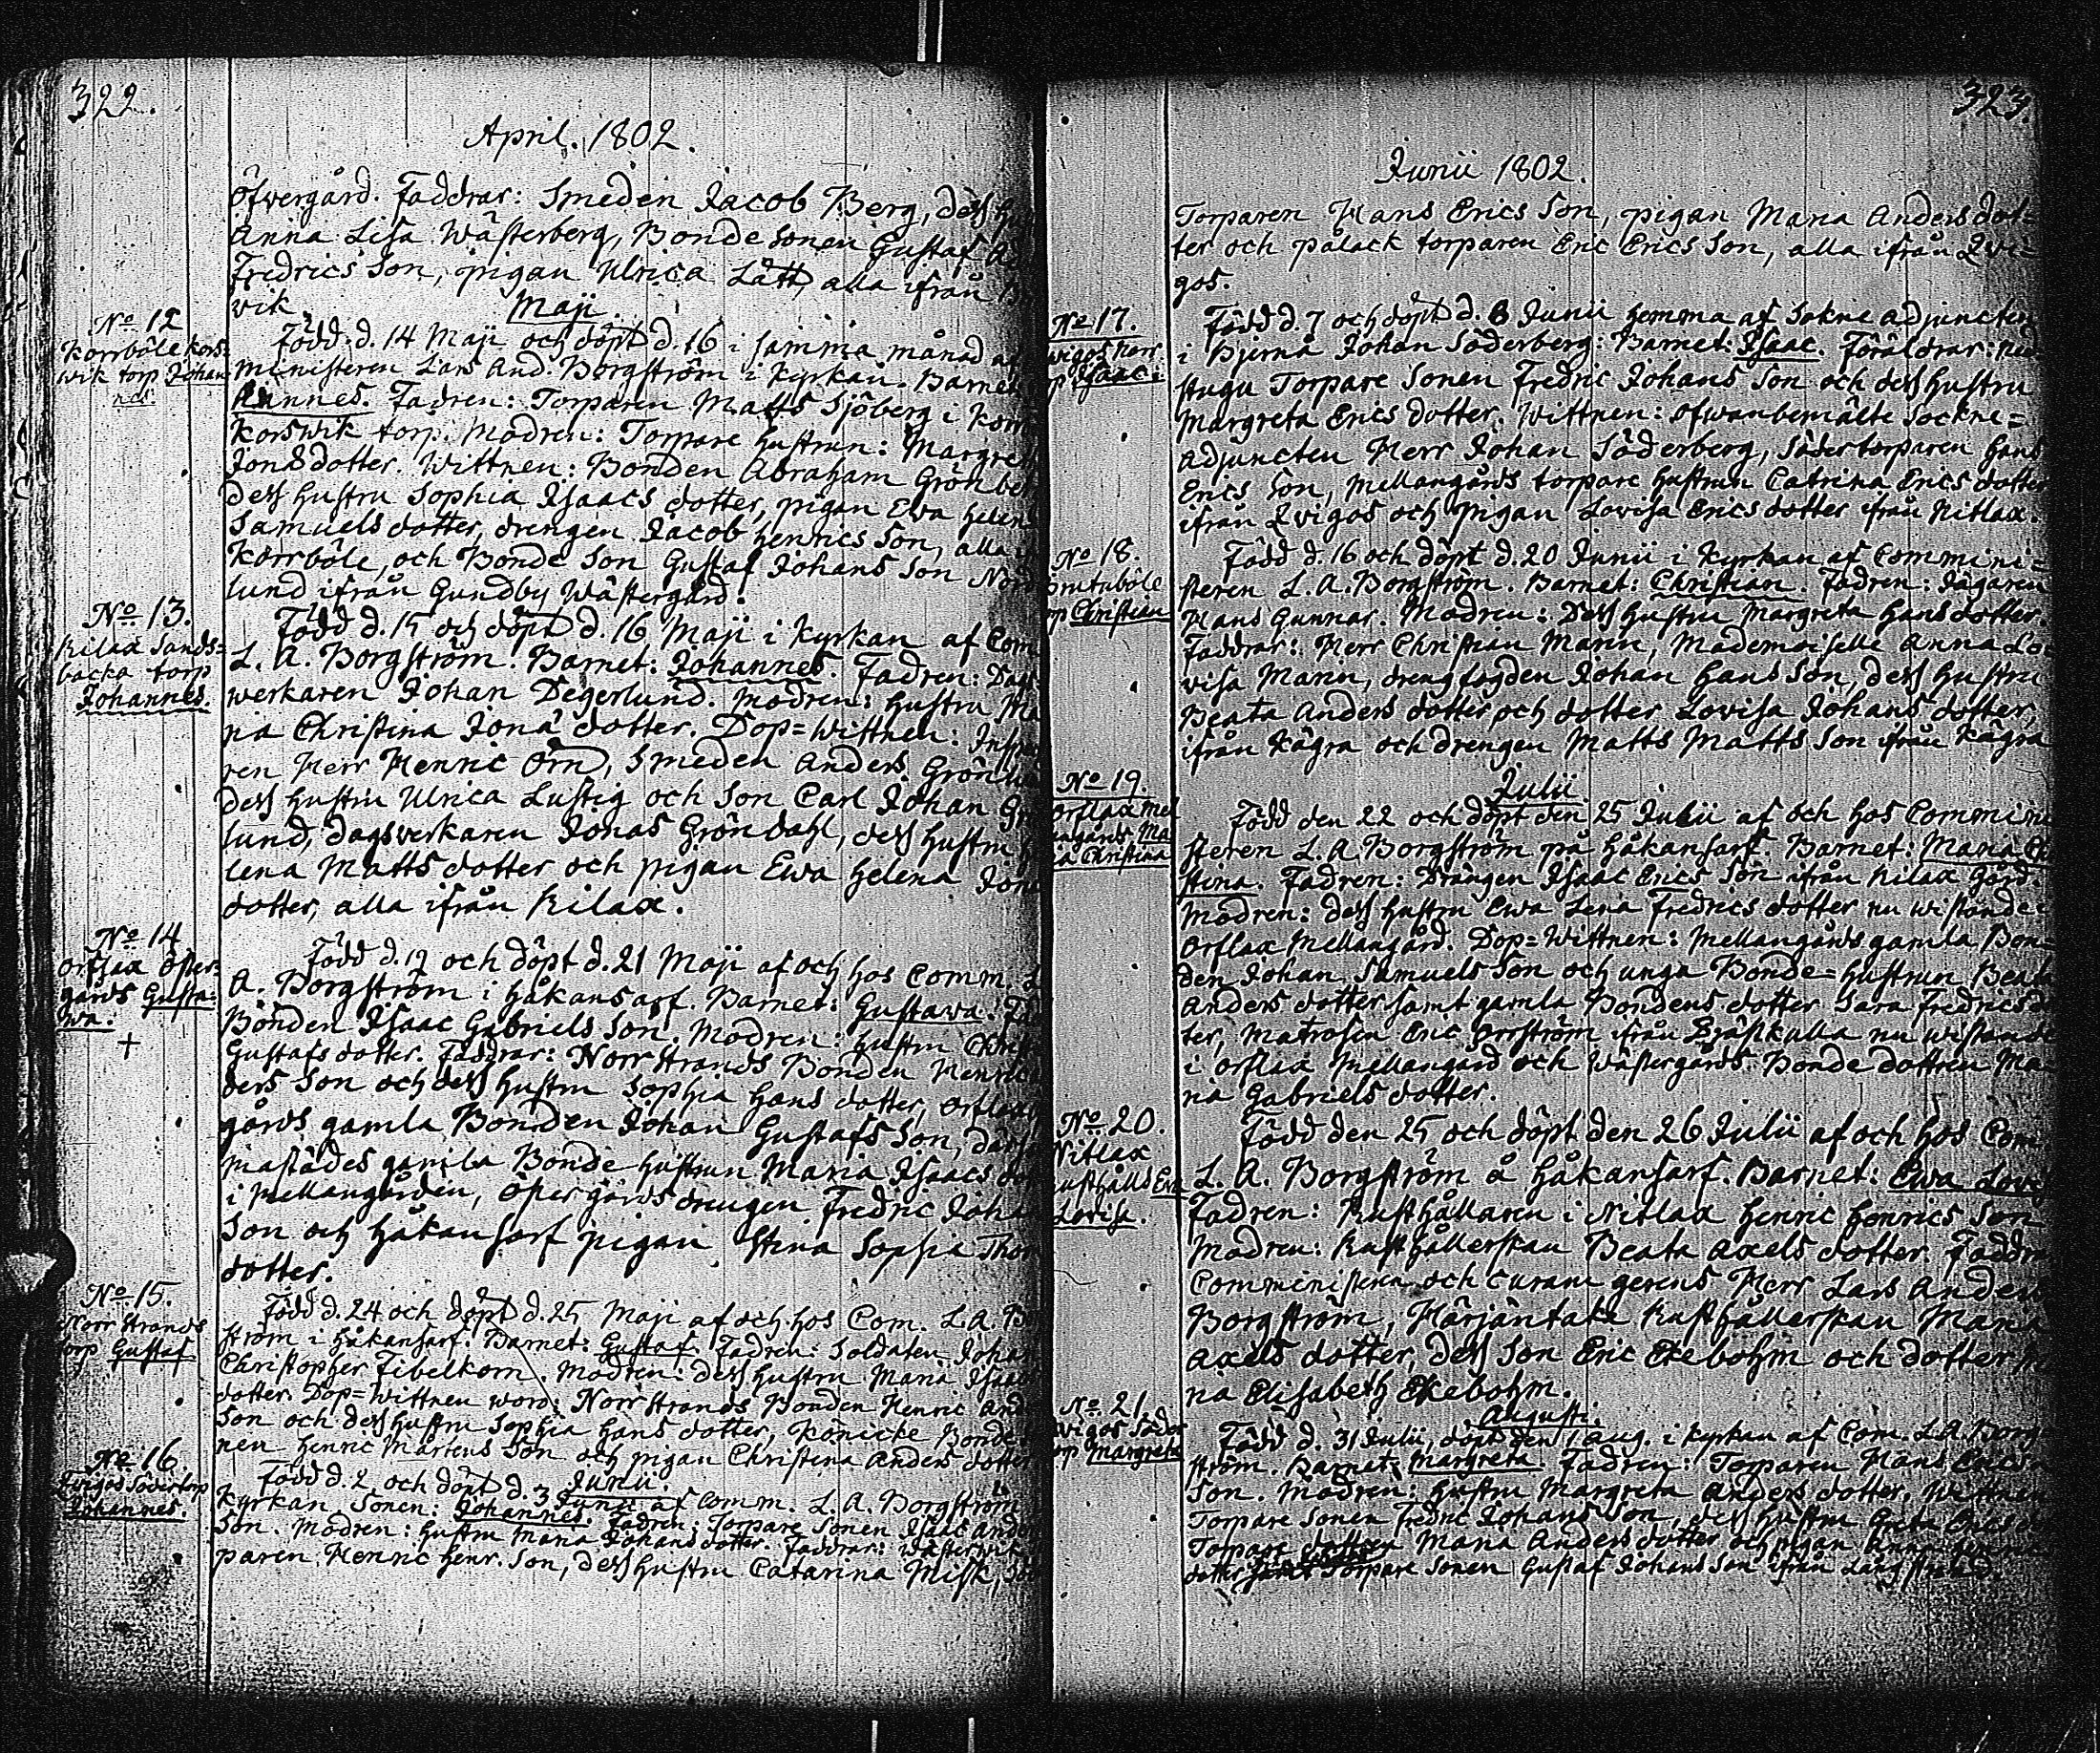 322.
April. 1802.
Öfvergård. Faddrar: Smeden Jacob Berg, dess
Anna Lisa Wästerberg, Bonde Sonen Gustaf
Fredrics Son, pigan Ulrica Lätt, alla ifrån
vik.
Maji.
No 12
Korrböle Kors=
wik torp Johan
nes.
Född d. 14 Maji och döpt d. 16 i samma månad af
ministeren Lars And. Borgström i Kyrkan. Barnet
hannes. Fadren: Torparen Matts Sjöberg i Korr
Korswik torp. Modren: Torpare hustrun: Margret
Jonsdotter. Wittnen: Bonden Abraham Grönbe
dess hustru Sophia Isaacs dotter, pigan Ewa Helen
Samuels dotter, drengen Jacob Henrics Son, alla
Korrböle, och Bonde Son Gustaf Johans Son Nord
lund ifrån Gundby Wästergård.
No 13.
Kilax Sands=
backa torp
Johannes.
Född d. 15 och döpt d. 16 Maji i Kyrkan af Com
L. A. Borgström. Barnet: Johannes. Fadren: Dags
werkaren Johan Degerlund. Modren: hustru Ma
ria Christina Jonæ dotter. Dop=wittnen:
ren Herr Henric Örn, Smeden Anders Grön
dess hustru Ulrica Lustig och Son Carl Johan Gr
lund, dagsverkaren Jonas Gröndahl, dess hustru
lena Matts dotter och pigan Ewa Helena Jona
dotter, alla ifrån Kilax.
No 14
Orslax Öfver=
gårds Gusta=
wa.
+
Född d. 19 och döpt d. 21 Maji af och hos Comm. L
A. Borgström i Håkansarf. Barnet: Gustawa.
Bonden Isaac Gabriels Son. Modren: hustru Christ
Gustafs dotter. Faddrar: Norrstrands Bonden Henric
ders Son och dess hustru Sophia Hans dotter, Orslax
gårds gamla Bonden Johan Gustafs Son,
gamla Bonde hustrun Maria Isaacs do
i Mellangården, Öfvergårds drengen Fredric Joha
Son och Håkansarf pigan Stina Sophia Tho
dotter.
No 15.
Norrstrands
orp Gustaf
Född d. 24 och döpt d. 25 Maji af och hos Com. L. A. B
ström i Håkansarf. Barnet: Gustaf. Fadren: Soldaten Joha
Christopher Fibelkorn. Modren: dess hustru Maria Isaac
dotter. Dop=wittnen woro: Norrstrands Bonden Henric And
Son och dess hustru Sophia Hans dotter, Könicke Bonde
nen Henric Mårtens Son och pigan Christina Anders dotter
Junii.
No 16.
Södertorp
Johannes.
Född d. 2 och döpt d. 3 Junii af Comm. L. A. Borgström
Kyrkan. Sonen: Johannes. Fadren: Torpare Sonen Isaac And
Son. Modren: hustru Maria Johans dotter. Faddrar:
paren Henric Henr. Son, dess hustru Catarina Misk,
323.
Junii 1802.
Torparen Hans Erics Son, pigan Maria Anders dot=
ter och torparen Eric Erics Son, alla ifrån Qvi=
gos.
No 17.
wigos Norr
p Isaac.
Född d. 7 och döpt d. 8 Junii hemma af Sokne adjuncten
i Bjerna Johan Söderberg: Barnet: Isaac. Föräldrar:
stugu Torpare Sonen Fredric Johans Son och dess hustru
Margreta Erics dotter. Wittnen: ofwanbemälte Sockne=
adjuncten Herr Johan Söderberg, Södertorparen Hans
Erics Son, Mellangårds torpare hustrun Catrina Erics dotter
ifrån Qvigos och pigan Lovisa Erics dotter ifrån Nitlax.
No 18.
böle
rp Christian
Född d. 16 och döpt d. 20 Junii i Kyrkan af Commini=
steren L. A. Borgström. Barnet: Christian. Fadren: Jägaren
Hans Gunnar. Modren: Dess hustru Margreta Hans dotter.
Faddrar: Herr Christian Marin, Mademoiselle Anna Lo=
visa Marin, drengfogden Johan Hans Son, dess hustru
Beata Anders dotter och dotter Lovisa Johans dotter,
ifrån Kägra och drengen Matts Matts Son ifrån Kägra
Julii.
No 19.
orslax Mel
langårds Ma
ria Christina
Född den 22 och döpt den 25 Julii af och hos Commini
steren L. A. Borgström på Håkansarf. Barnet: Maria Ch
stina. Fadren: Drängen Isaac Erics Son ifrån Kilax Gård.
Modren: dess hustru Ewa Lena Fredrics dotter nu wistande
Orslax Mellangård. Dop=Wittnen: Mellangårds gamla Bon=
den Johan Samuels Son och unga Bonde=hustrun Beat
Anders dotter samt gamla Bondens dotter Sara Fredrics d
ter, Matrosen Eric Orrström ifrån nu wistande
i Orslax Mellangård och Wästergårds Bonde dottren Ma=
ria Gabriels dotter.
No 20.
Nitlax
usthålls Ewa
Lovisa.
Född den 25 och döpt den 26 Julii af och hos Com
L. A. Borgström å Håkansarf. Barnet: Ewa Lov
Fadren: Rusthållaren i Nitlax Henric Henrics Son
Modren: Rusthållerskan Beata Axels dotter. Faddra
Comministeren och Curam gerens Herr Lars Anders
Borgström, Härjäntaka Rusthållerskan Maria
Axels dotter, dess Son Eric Ekebohm och dotter
ria Elisabeth Ekebohm.
Augusti.
No 21
wigos Söder
orp Margreta
Född d. 31 Julii, döpt den 1 Aug. i Kyrkan af Com. L. A. Borg
ström. Barnet: Margreta. Fadren: Torparen Hans Erics
Son. Modren: hustru Margreta Anders dotter. Wittnen
Torpare Sonen Fredric Johans Son, dess hustru Greta Erics d
Torpare dottren Maria Anders dotter och pigan Anna
dotter Torpare Sonen Gustaf Johans Son ifrån Långstrand.